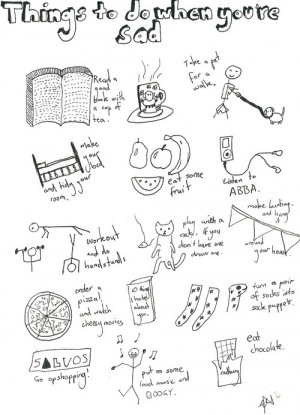 Things to do when you're
sad
Read a
good
book with
a cup of
tea.
Take a pet
for a
walk.
make
your
bed
and tidy your
room.
eat some
fruit
Listen to
ABBA.
workout
and do
handstands
play with a
cat. If you
don't have one
draw one.
make bunting
and hang
it
around
your house
order a
pizza
and watch
cheesy movies
10 things
I hate
about
you.
turn a pair
of socks into
sock puppets.
SALVOS
Go opshopping!
put on some
loud music and
BOOGY.
eat
chocolate.
cadbury